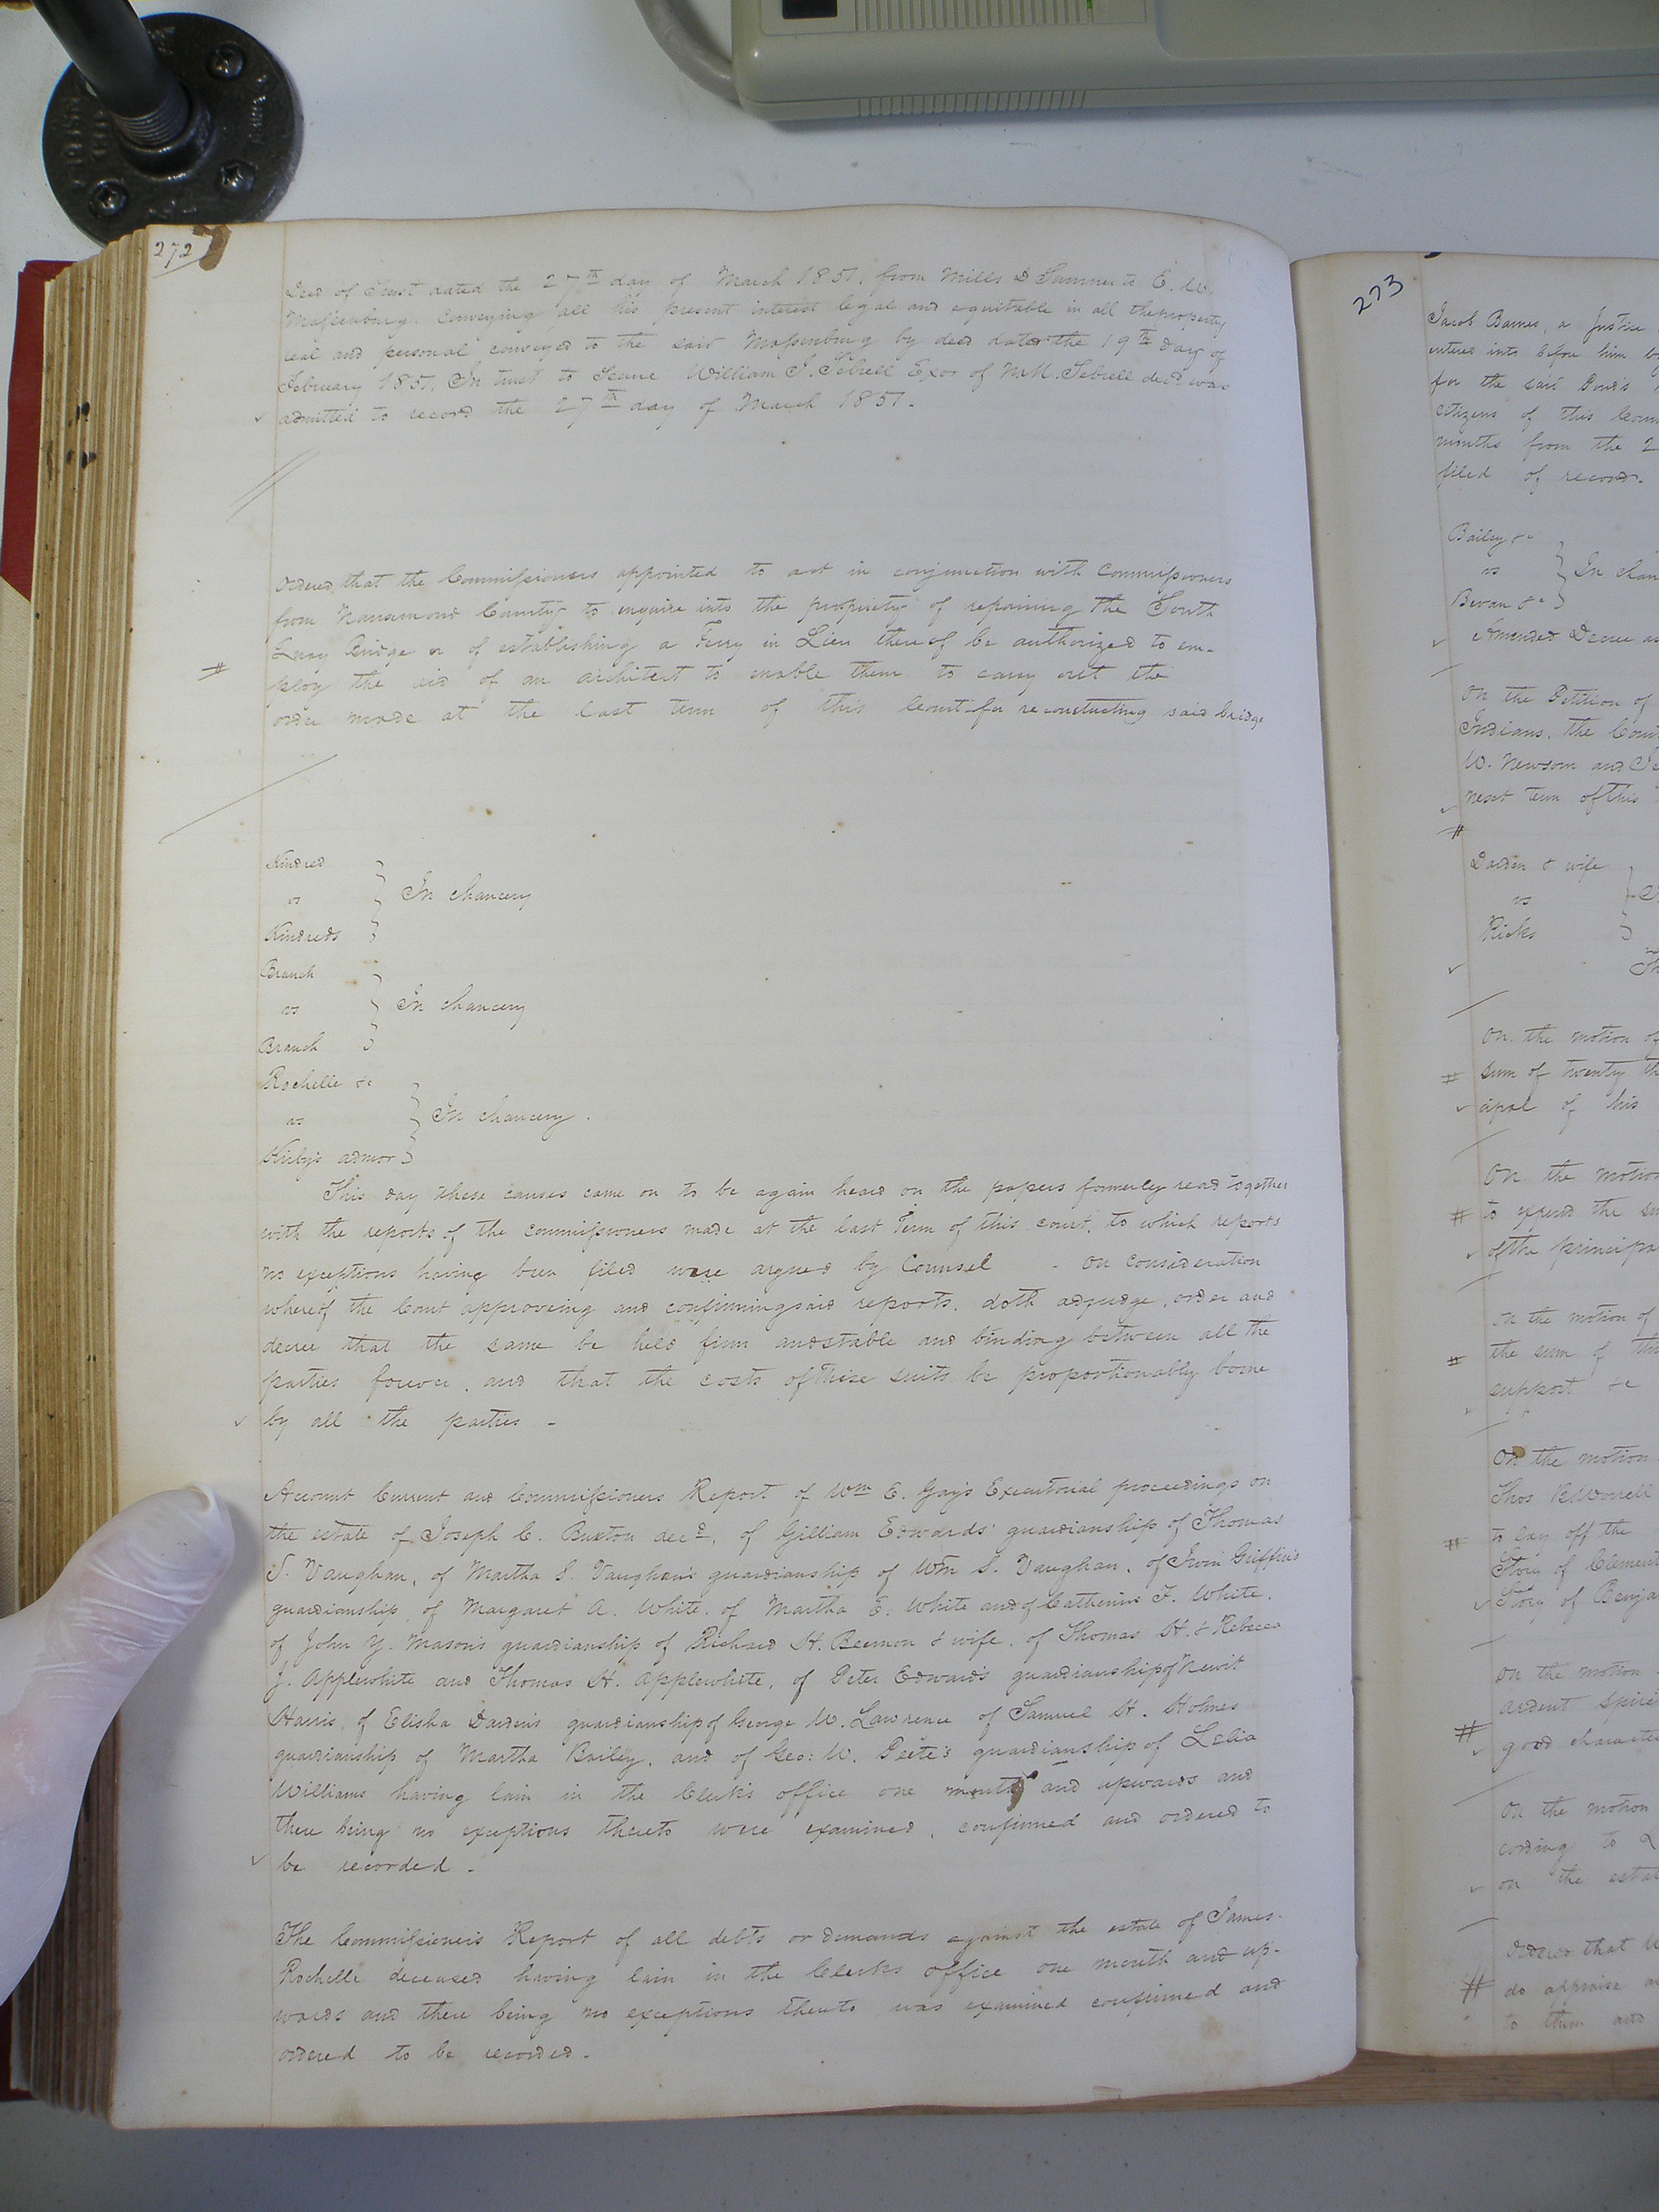 272
Deed of Trust dated the 27th day of March 1851. from Mills D Summer to E. W.
Massenburg. Conveying all his present interest legal and equitable in all the property
real and personal conveyed to the said Massenburg by deed dated the 19th day of
February 1851, In trust to secure William J. Sebrell Exor of N. M. Sebrell decd was
admitted to record the 27th day of March 1851.
Ordered, that the Commissioners appointed to act in conjunction with Commissioners
from Nansemond County to enquire into the propriety of repairing the South
Quay Bridge or of establishing a Ferry in Lieu thereof be authorized to em-
ploy the aid of an architect to enable them to carry out the
order made at the last term of this Court for reconstructing said bridge
Kindred
vs } In chancery
Kindreds
Branch
vs } In chancery
Branch
Rochelle &c
vs } In chancery.
Kirby's admor
This day these causes came on to be again heard on the papers formerly read together
with the reports of the commissioners made at the last Term of this court, to which reports
no exceptions having been filed were argued by Counsel - On consideration
whereof the Court approveing and confirming said reports. doth adjudge, order and
decree that the same be held firm and stable and binding between all the
parties forever. and that the costs of these suits be proportionably borne
by all the parties -
Account Current and Commissioners Report of Wm E. Gay's Executorial proceedings on
the estate of Joseph C. Buxton decd, of Gilliam Edwards' guardianship of Thomas
J. Vaughan, of Martha S. Vaughan's guardianship of Wm S. Vaughan, of Irvin Griffin's
guardianship of Margaret A. White. of Martha E. White and of Catherine F. White.
of John Y. Mason's guardianship of Richard H. Beemon & wife, of Thomas H. & Rebecca
J. Applewhite and Thomas H. Applewhite, of Peter Edwards guardianship of Newit
Harris, of Elisha Darden's guardianship of George W. Lawrence of Samuel H. Holmes
guardianship of Martha Bailey, and of Geo: W. Peete's guardianship of Lelia
Williams having lain in the Clerk's office one month and upwards and
there being no exceptions thereto were examined, confirmed and ordered to
be recorded -
The Commissioner's Report of all debts or demands against the estate of James
Rochelle deceased having lain in the Clerks office one month and up-
wards and there being no exceptions thereto was examined confirmed and
ordered to be recorded -
273
Jacob Barnes, a Justice
entered into before him
for the said
citizens of this
months from the 2
filed of record.
Bailey &c
vs } In chan
Bevan &c
Amended Decree
On the Petition of
Indians, the Cour
W. Newsom and
next term of this
Darden & wife
vs
Ricks
On the motion of
sum of twenty
cipal of his
On the motion
to expend the su
of the principa
On the motion of
the sum of
support &c
On the motion
Thos
to lay off the
Story of Clement
Story of Benja
On the motion
ardent Spiri
good character
On the motion
cording to
on the estat
Ordered that
do appraise
to them and